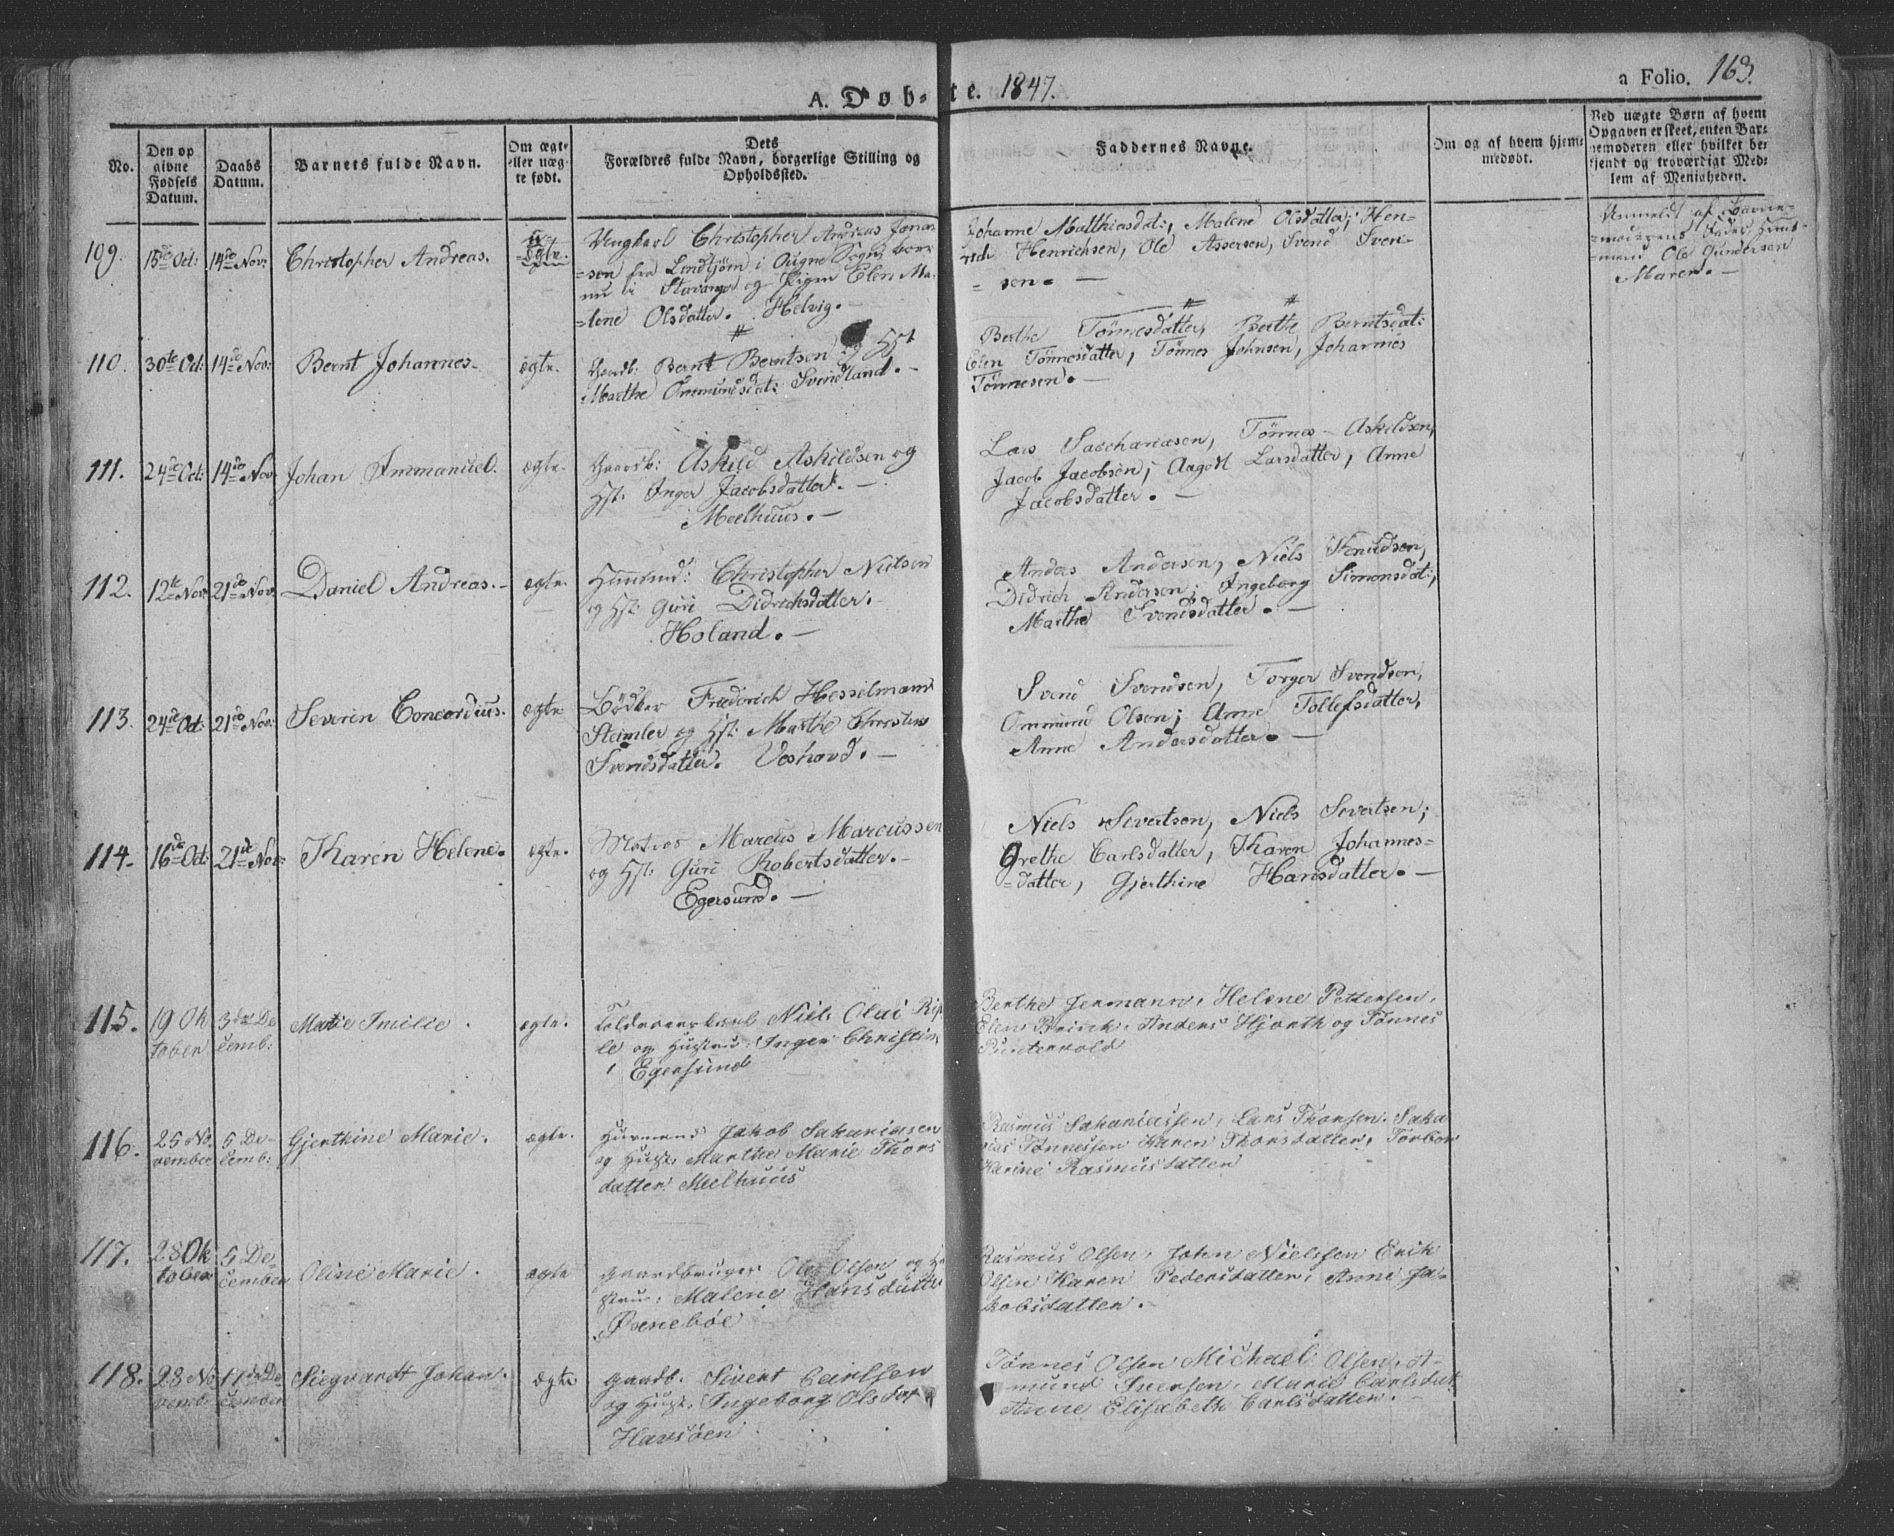 A. Døb-te. 1847.
a Folio. 163.
No.
Den op
givne
Fødsels
Datum.
Daabs
Datum.
Barnets fulde Navn.
Om ægte
eller uæg-
te født.
Dets
Forældres fulde Navn, borgerlige Stilling og
Opholdssted.
Faddernes Navne.
Om og af hvem hjemmedøbt.
Ved uægte Børn af hvem
Opgaven er skeet, enten Bar-
nemoderen eller hvilket be-
kjendt og troværdigt Med-
lem af Menigheden.
109. 15de Oct: 14de Nov: Christopher Andreas. u-
ægte.
Ungkarl Christopher Andreas Jonas-
sen fra Lindtjörn i Sogn, boen-
de i Stavanger og Pigen Elen Ma-
lene Olsdatter. Helvig. —
Johanne Matthiasdat:, Malene Olsdatter; Hen-
rich Henrichsen, Ole Assersen, Svend Sven-
sen. —
Anmeldt af Barne-
moderens Fader Huus-
mand Ole Gundersen
110. 30te Oct: 14de Nov: Bernt Johannes. ægte.
Gaardb: Bernt Berntsen og Hst
Marthe Ommundsdat: Svindland. —
Berthe Tönnesdatter, Berthe Berntsdat:
Elen Tönnesdatter, Tönnes Johnsen, Johannes
Tönnesen. —
111. 24de Oct: 14de Nov: Johan Immanuel. ægte.
Gaardb: Askild Askildsen og
Hst: Inger Jacobsdatter. —
Meelhuus. —
Lars Sachariasen, Tönnes Askildsen,
Jacob Jacobsen; Aagot Larsdatter, Anne
Jacobsdatter. —
112. 12te Nov: 21de Nov: Daniel Andreas. — ægte.
Huusmd: Christopher Nielsen
og Hst: Guri Didrichsdatter. —
Holand. —
Anders Andersen, Niels Knudsen,
Didrich Andersen; Ingeborg Simonsdat:,
Marthe Svendsdatter. —
113. 24de Oct: 21de Nov: Severin Concordius. ægte
Bödker Frederich Hesselmann
Steimler og Hst: Marthe Christine
Svendsdatter. Veshovd. —
Svend Svendsen, Torger Svendsen,
Ommund Olsen; Anne Tollefsdatter,
Anne Andersdatter. —
114. 16de Oct: 21de Nov: Karen Helene. ægte.
Matros Marcus Marcussen
og Hst: Guri Robertsdatter. —
Egersund. —
Niels Sivertsen, Niels Severtsen;
Grethe Carlsdatter, Karen Johannes-
datter, Gjerthine Hansdatter. —
115. 19 Ok
tober 3die De
cemb: Marie Emilie. ægte.
Niels Olai
og Hustru: Inger Christin
Egersund
Berthe Jermann, Helene Pettersen,
Elen Brinck, Anders Hjorth og Tönnes
Puntervold
116. 25 No
vember 5 De-
cemb: Gjerthine Marie. ægte.
Huusmand Jakob Sakariasen
og Hust: Marthe Marie Thors
datter: Melhuus
Rasmus Sakariassen, Lars Thorsen. Saka
rias Tönnessen Karen Thorsdatter, Torbor
Karine Rasmusdatter
117. 28 Ok
tober 5 De-
cember Oline Marie. ægte
Gaardbruger Ole Olsen og Hu
stru: Malene Hansdatter
Svaneböe
Rasmus Olsen, John Nielssen Erik
Olsen Karen Pedersdatter, Anne Ja-
kobsdatter. —
118. 28 No
vemb: 11de De
cember Siegvardt Johan. ægte
Gaardb. Sivert Carlsen
og Hust. Ingeborg Olsdat
Havsöen
Tönnes Olsen Michael Olsen, A-
mund Iversen, Marie Carlsdat
Anne Elisabeth Carlsdatter. —